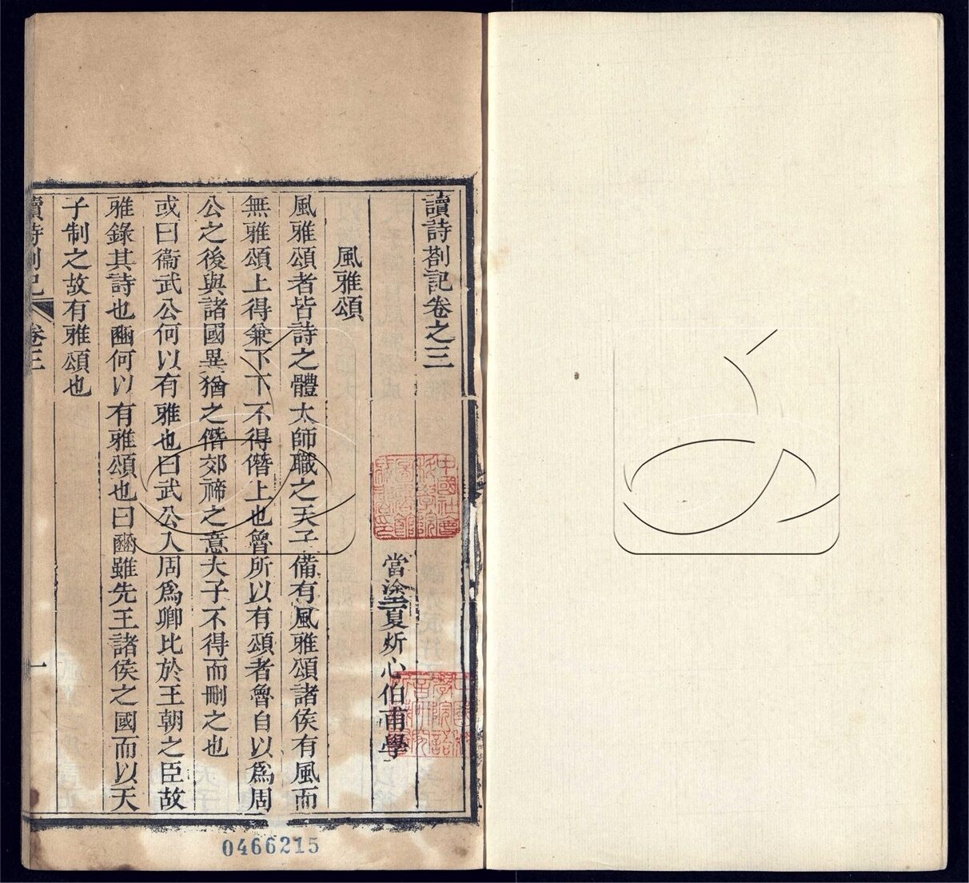 讀詩劄記卷之三
當塗夏炘心伯甫學
風雅頌
風雅頌者皆詩之體太師職之天子備有風雅頌諸侯有風而
無雅頌上得兼下下不得僭上也魯所以有頌者魯自以爲周
公之後與諸國異猶之僭郊禘之意夫子不得而刪之也
或曰衞武公何以有雅也曰武公入周爲卿比於王朝之臣故
雅錄其詩也豳何以有雅頌也曰豳雖先王諸侯之國而以天
子制之故有雅頌也
讀詩劄記
卷三
一
0466215